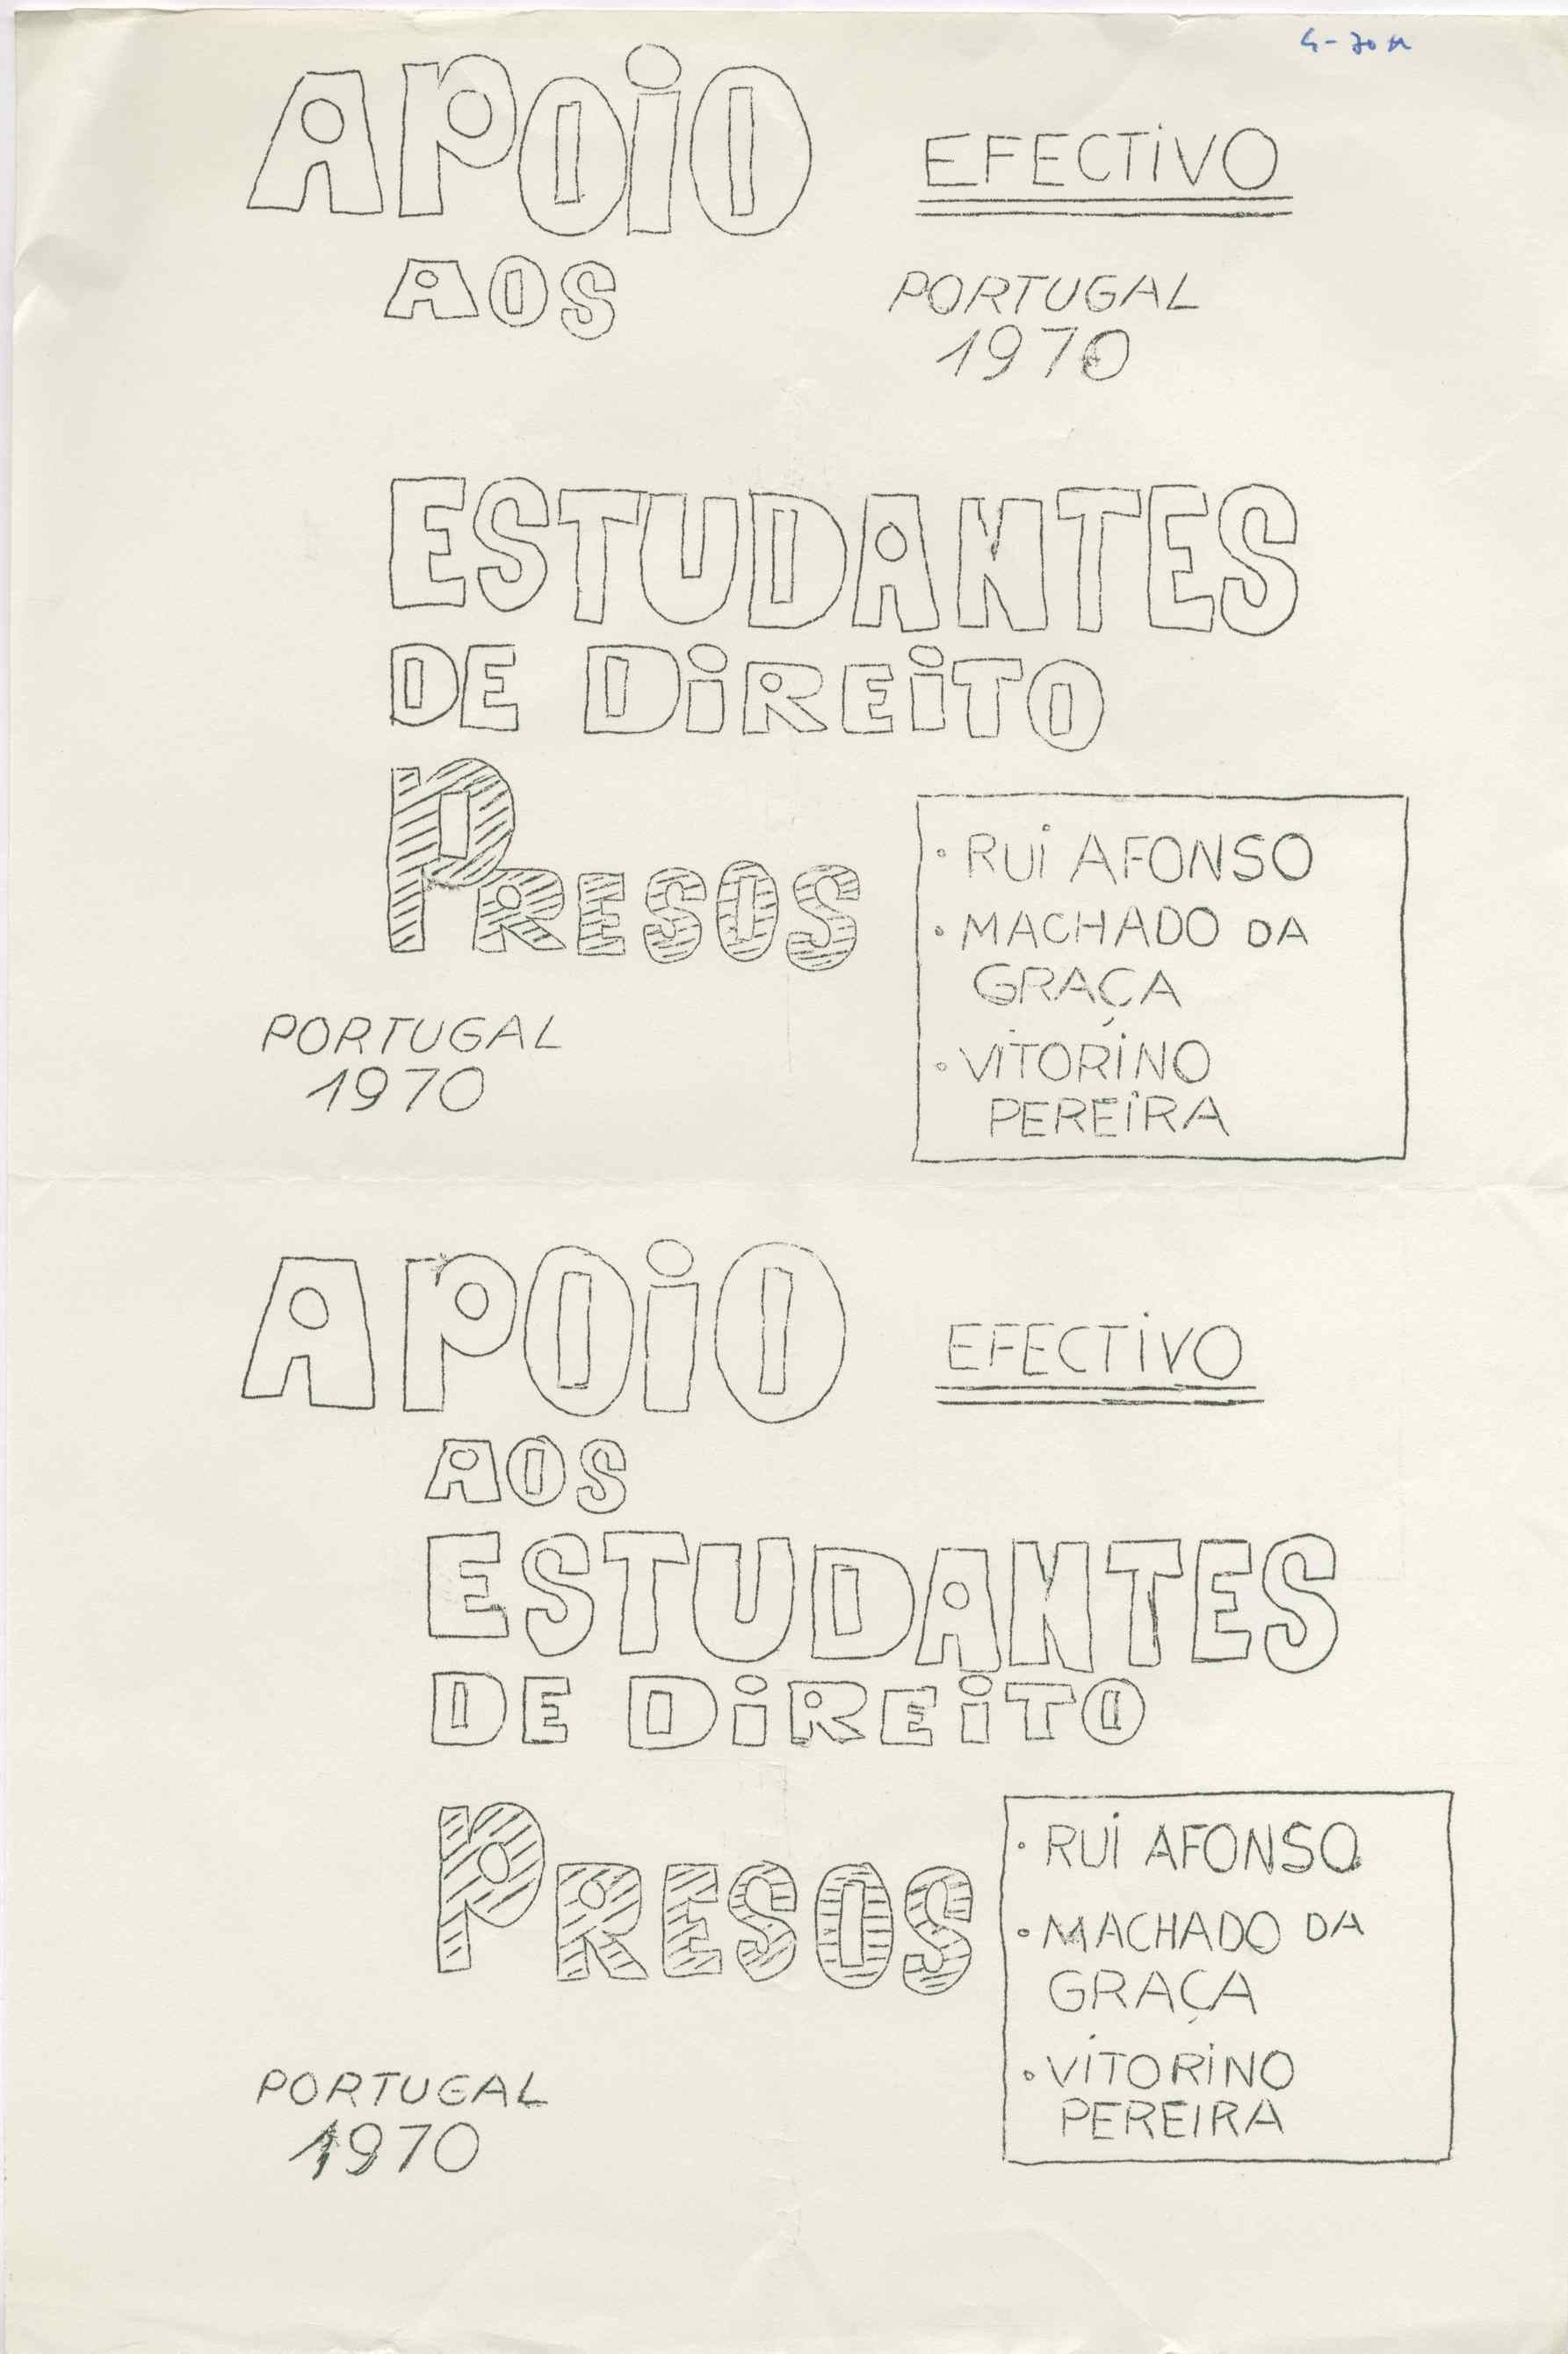 APOIO EFECTIVO
AOS
PORTUGAL
1970
ESTUDANTES
DE DIREITO
PRESOS
• RUI AFONSO
• MACHADO DA
GRAÇA
• VITORINO
PEREIRA
PORTUGAL
1970
APOIO EFECTIVO
AOS
ESTUDANTES
DE DIREITO
PRESOS
• RUI AFONSO
• MACHADO DA
GRAÇA
• VITORINO
PEREIRA
PORTUGAL
1970